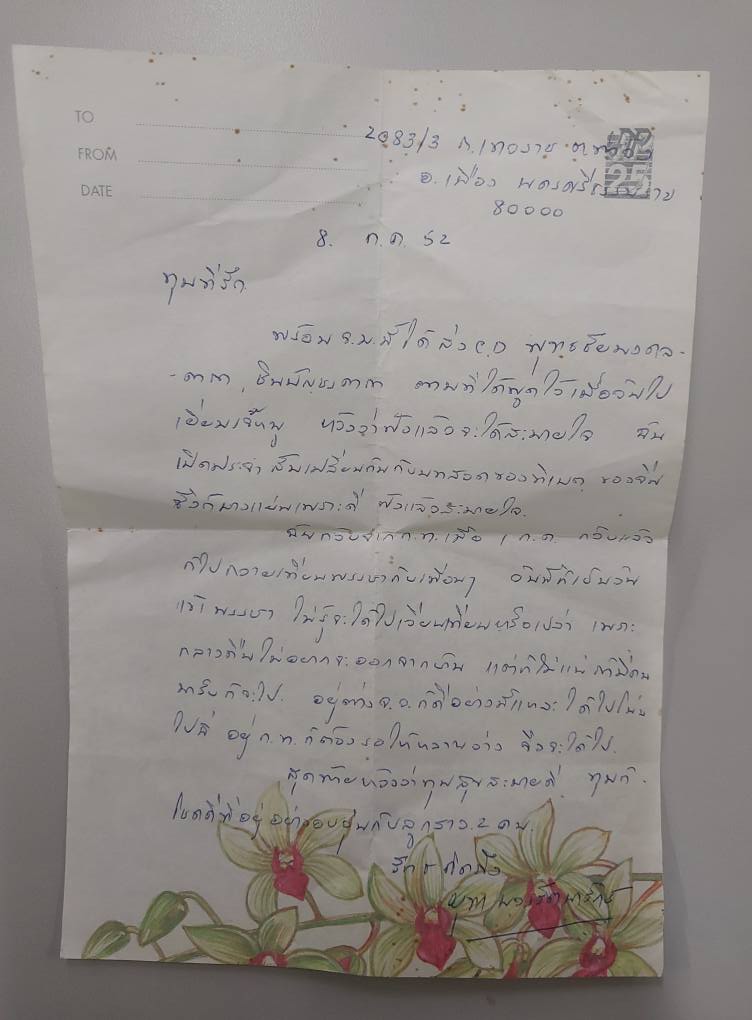 TO
FROM
DATE
2083/3
อ. เมือง
80000
8. ก.ค. 52
ทุมที่รัก
พร้อม จ.ม. นี้ ได้ส่ง C.D พุทธชัยมงคล-
-คาถา, ชินบัญชรคาถา ตามที่ได้พูดไว้เมื่อวันไป
เยี่ยมเจ๊หมู หวังว่าฟังแล้วจะได้สะบายใจ ฉัน
เปิดประจำ สับเปลี่ยนกันกับบทสวดของทิเบต, ของจีน
ซึ่งก็ ไพเราะดี ฟังแล้วสะบายใจ.
ฉันกลับจาก ก.ท. เมื่อ 1 ก.ค. กลับแล้ว
ก็ไปถวายเทียนพรรษากับเพื่อนๆ วันนี้ก็เป็นวัน
เข้าพรรษา ไม่รู้จะได้ไปเวียนเทียนหรือเปล่า เพราะ
กลางคืนไม่อยากจะออกจากบ้าน แต่ก็ไม่แน่ ถ้ามีคน
มารับก็จะไป. อยู่ต่าง จ.ว. ก็ดีอย่างนี้แหละ ได้ไปโน่น
ไปนี่ อยู่ ก.ท. ก็ต้องรอให้หลานว่าง จึงจะได้ไป.
สุดท้ายหวังว่าทุมสุขสะบายดี ทุมก็
โชคดีที่อยู่อย่างอบอุ่นกับลูกสาว 2 คน.
รักและคิดถึง